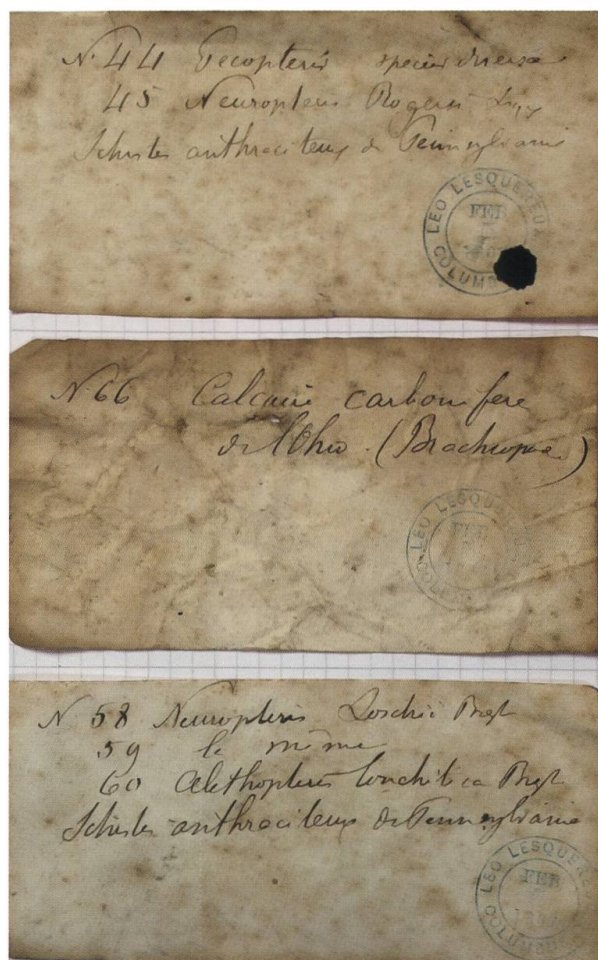 N. 44 Pecopteris species diverses
45 Neuropteris Rogersi Lesqx
Schistes anthraciteux de Pennsylvanie
LEO LESQUEREUX
FEB
COLUMB
N 66 Calcaire carbonifere
de l'Ohio. (Brachiopode)
LEO LESQU
FEB
COLUMBUS
N 58 Neuropteris Loschii Brgt
59 le même
60 Alethopteris lonchitica Brgt
Schistes anthraciteux de Pennsylvanie
LEO LESQUERE
FEB
COLUMBUS